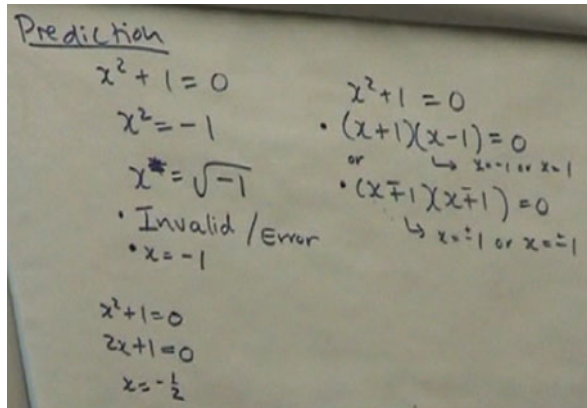 Prediction
x² + 1 = 0
x² = -1
x = √-1
• Invalid / Error
• x = -1
x² + 1 = 0
2x + 1 = 0
x = -½
x² + 1 = 0
• (x+1)(x-1) = 0
or
↳ x = -1 or x = 1
• (x∓1)(x∓1) = 0